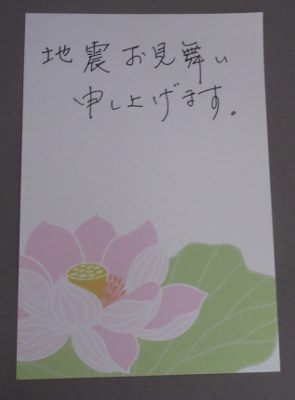 地震お見舞い
申し上げます。